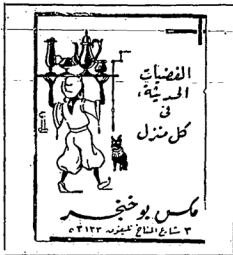 الفضيات
الحديثة،
فى
كل منزل
مكس بوخنجر
٣ شارع المناخ تليفون ٥٣١٢٣